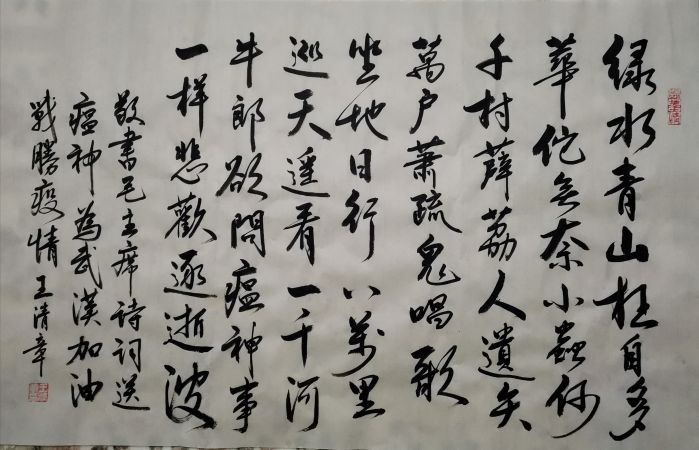 绿水青山枉自多
華佗無奈小蟲何
千村薜荔人遺矢
萬户蕭疏鬼唱歌
坐地日行八萬里
巡天遥看一千河
牛郎欲問瘟神事
一样悲歡逐逝波
敬書毛主席詩词送
瘟神為武漢加油
戰勝疫情王清章